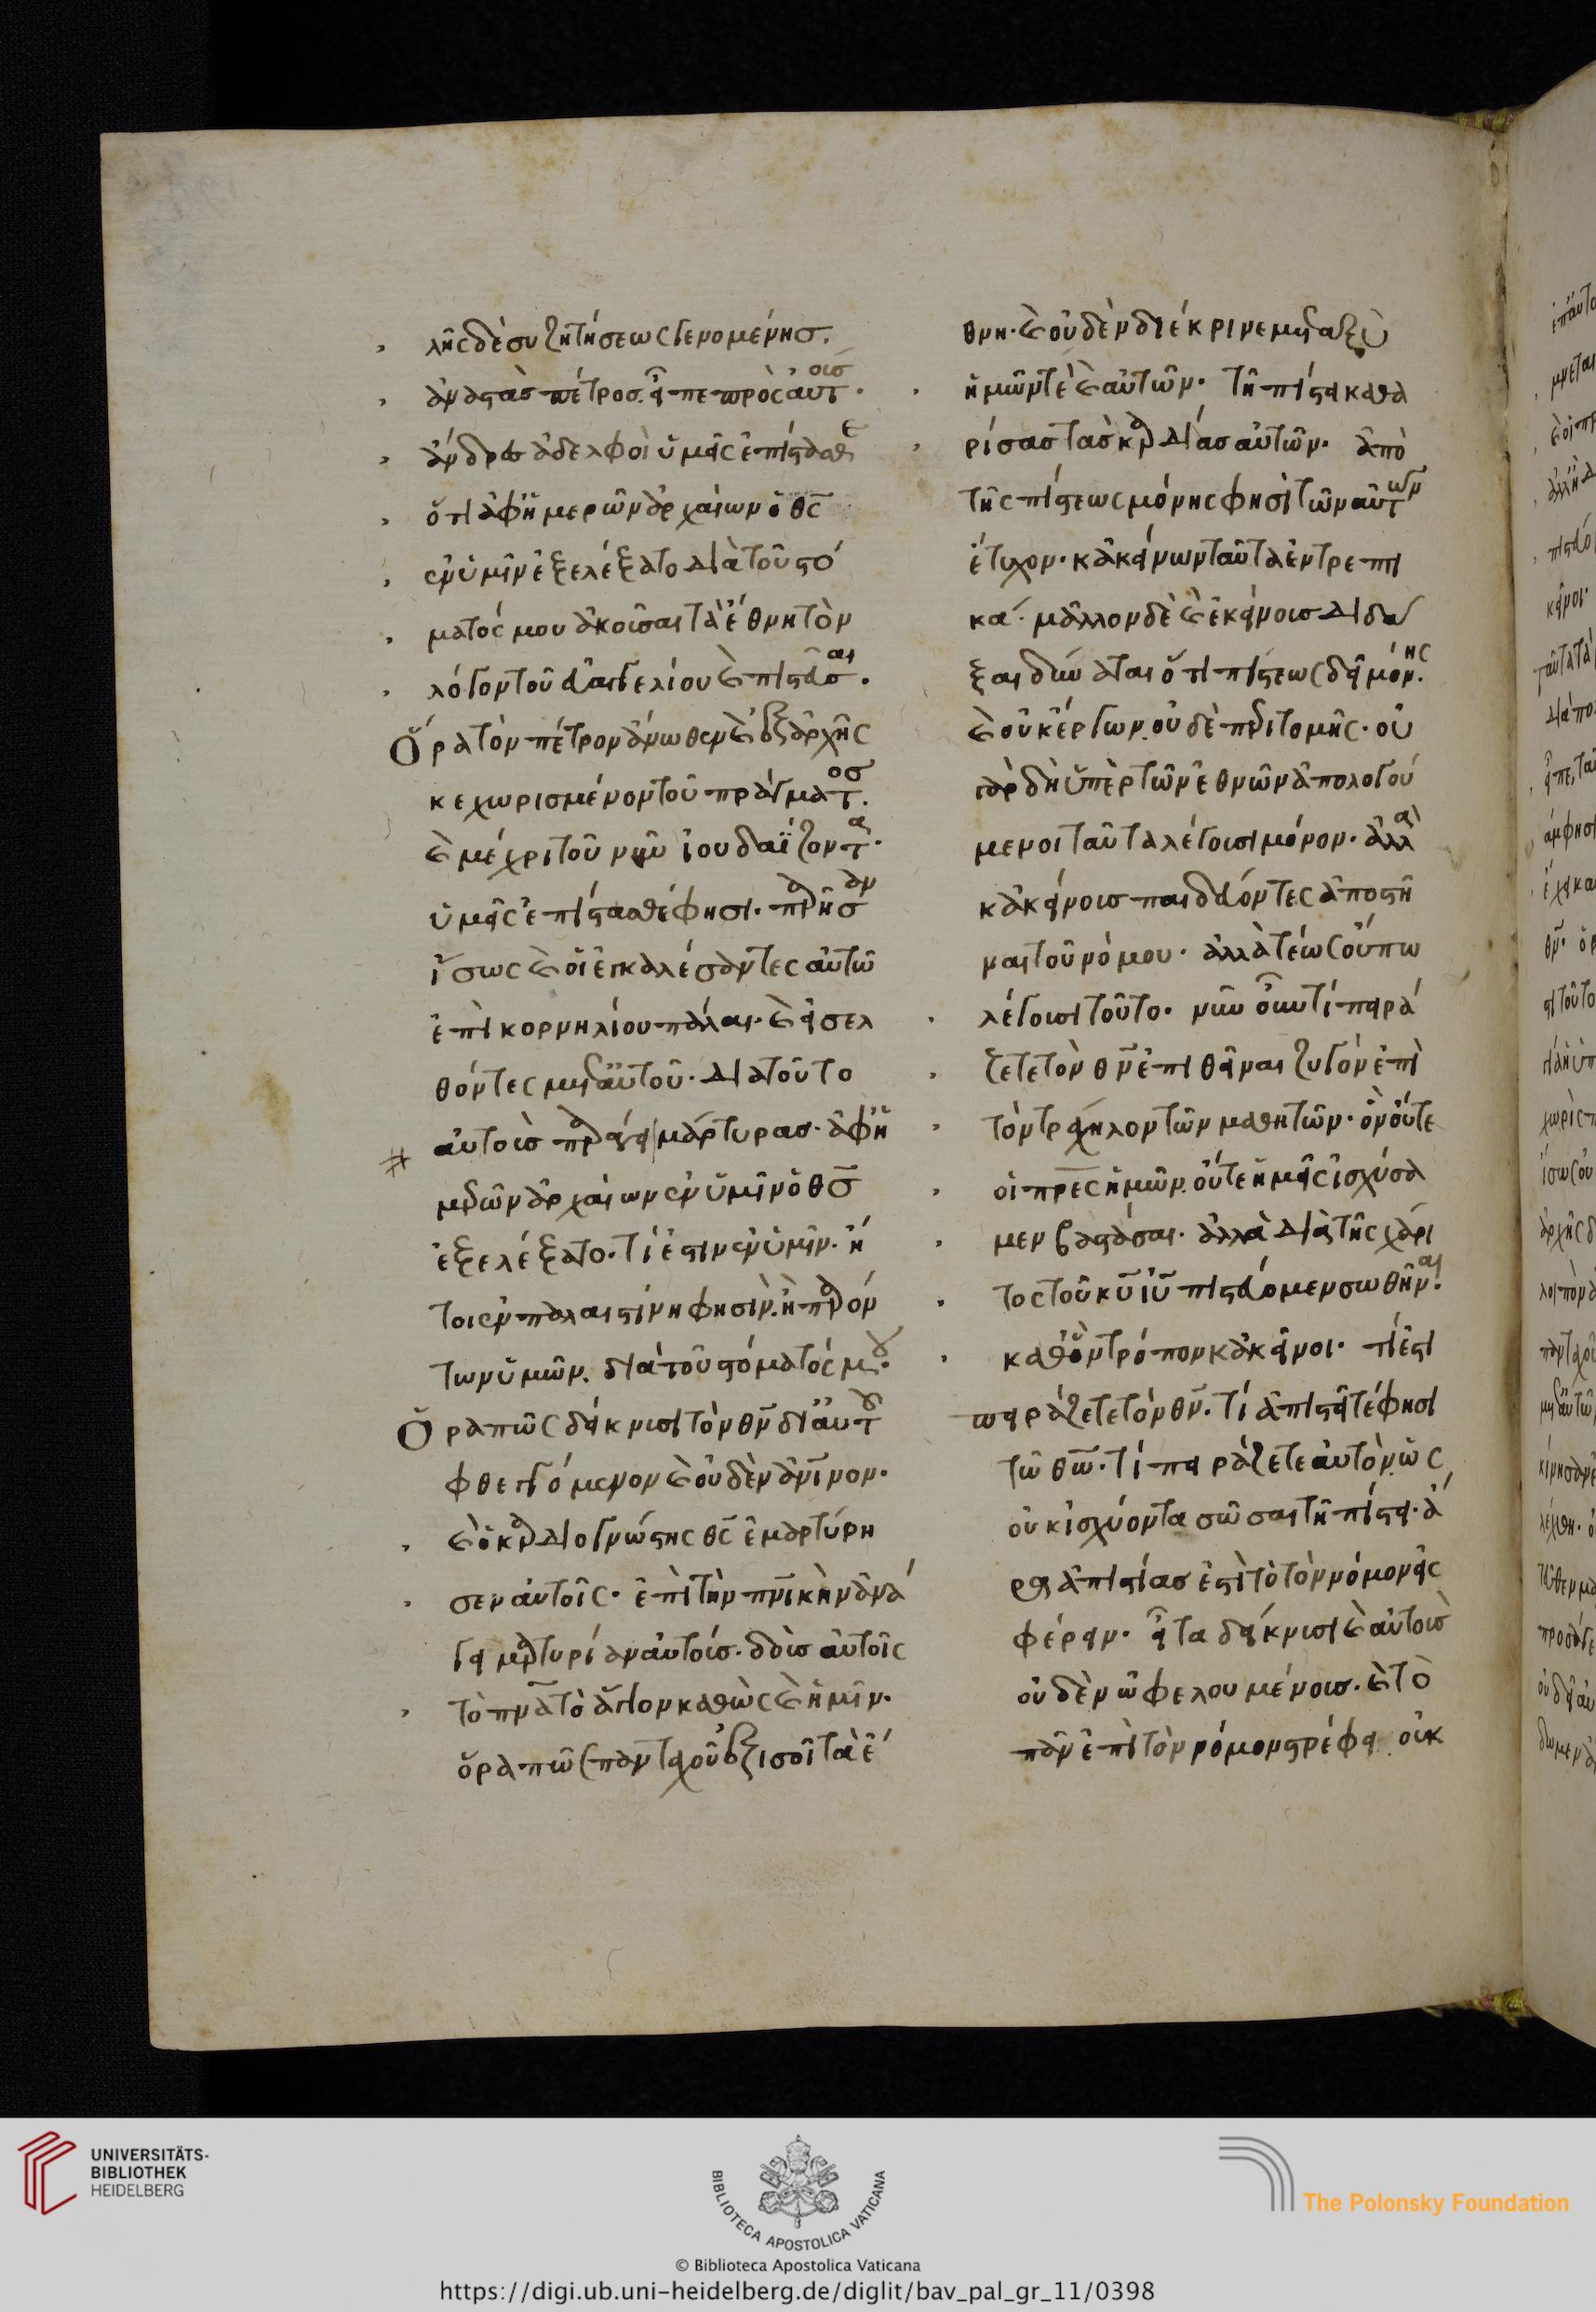 λῆς δὲ συζητήσεως γενομένησ.
ἀναστὰσ πέτροσ εἶπε πρὸς αὐτοισ.
ἄνδρες ἀδελφοὶ ὑμεῖς ἐπίστασθε
ὅτι ἀφ ἡμερῶν ἀρχαίων ὁ θς
ἐν ὑμῖν ἐξελέξατο διὰ τοῦ στό
ματός μου ἀκοῦσαι τὰ ἔθνη τὸν
λόγον τοῦ εὐαγγελίου καὶ πιστεῦσαι.
Ὅρα τὸν πέτρον ἄνωθεν καὶ ἐξαρχῆς
κεχωρισμένον τοῦ πράγματος.
καὶ μέχρι τοῦ νῦν ἰουδαΐζοντα.
ὑμεῖς ἐπίστασθέ φησι. παρῆσαν
ἴσως καὶ οἱ ἐγκαλέσαντες αὐτῶ
ἐπὶ κορνηλίου πάλαι. καὶ εἰσελ
θόντες μετ αὐτοῦ. διατοῦτο
αὐτοὺσ παράγει μάρτυρασ. ἀφ ἡ
μερῶν ἀρχαίων ἐν ὑμῖν ὁ θσ
ἐξελέξατο. τί ἐστιν ἐν ὑμῖν. ἤ
τοι ἐν παλαιστίνη φησὶν. ἢ παρόν
των ὑμῶν. διὰ τοῦ στόματός μου.
Ὅρα πῶς δείκνυσι τὸν θν δι αὐτοῦ
φθεγγόμενον καὶ οὐδὲν ἀνθρώπινον.
καὶ ὁ καρδιογνώστης θς ἐμαρτύρη
σεν αὐτοῖς. ἐπὶ τὴν πνικὴν ἀνά
γει μαρτυρίαν αὐτούσ. δοὺσ αὐτοῖς
τὸ πνα τὸ ἅγιον καθὼς καὶ ἡμῖν.
ὅρα πῶς πανταχοῦ ἐξισοῖ τὰ ἔ
θνη. καὶ οὐδὲν διέκρινε μεταξὺ
ἡμῶν τὲ καὶ αὐτῶν. τῆ πίστει καθα
ρίσασ τὰσ καρδίασ αὐτῶν. ἀπὸ
τῆς πίστεως μόνης φησὶ τῶν αὐτῶν
ἔτυχον. κἀκείνων ταῦτα ἐντρεπτι
κά. μᾶλλον δὲ καὶ ἐκείνουσ διδά
ξαι δύναται ὅτι πίστεως δεῖ μόνης.
καὶ οὐκ ἔργων. οὐδὲ περιτομῆς. οὐ
γὰρ δὴ ὑπὲρ τῶν ἐθνῶν ἀπολογού
μενοι ταῦτα λέγουσι μόνον. ἀλλὰ
κἀκείνουσ παιδεύοντες ἀποστῆ
ναι τοῦ νόμου. ἀλλὰ τέως οὔπω
λέγουσι τοῦτο. νῦν οὖν τί πειρά
ζετε τὸν θν ἐπιθεῖναι ζυγὸν ἐπὶ
τὸν τράχηλον τῶν μαθητῶν. ὃν οὔτε
οἱ πρες ἡμῶν. οὔτε ἡμεῖς ἰσχύσα
μεν βαστάσαι. ἀλλὰ διὰ τῆς χάρι
τος τοῦ κυ ιυ πιστεύομεν σωθῆναι.
καθ ὃν τρόπον κἀκεῖνοι. τί ἐστι
πειράζετε τὸν θν. τί ἀπιστεῖτέ φησι
τῶ θω. τί πειράζετε αὐτὸν. ὡς
οὐκ ἰσχύοντα σῶσαι τῆ πίστει. ἄ
ρα ἀπιστίασ ἐστὶ τὸ τὸν νόμον εἰς
φέρειν. εἶτα δείκνυσι καὶ αὐτοὺσ
οὐδὲν ὠφελουμένουσ. καὶ τὸ
πᾶν ἐπὶ τὸν νόμον στρέφει. οὐκ
UNIVERSITÄTS-
BIBLIOTHEK
HEIDELBERG
BIBLIOTECA APOSTOLICA VATICANA
The Polonsky Foundation
© Biblioteca Apostolica Vaticana
https://digi.ub.uni-heidelberg.de/diglit/bav_pal_gr_11/0398